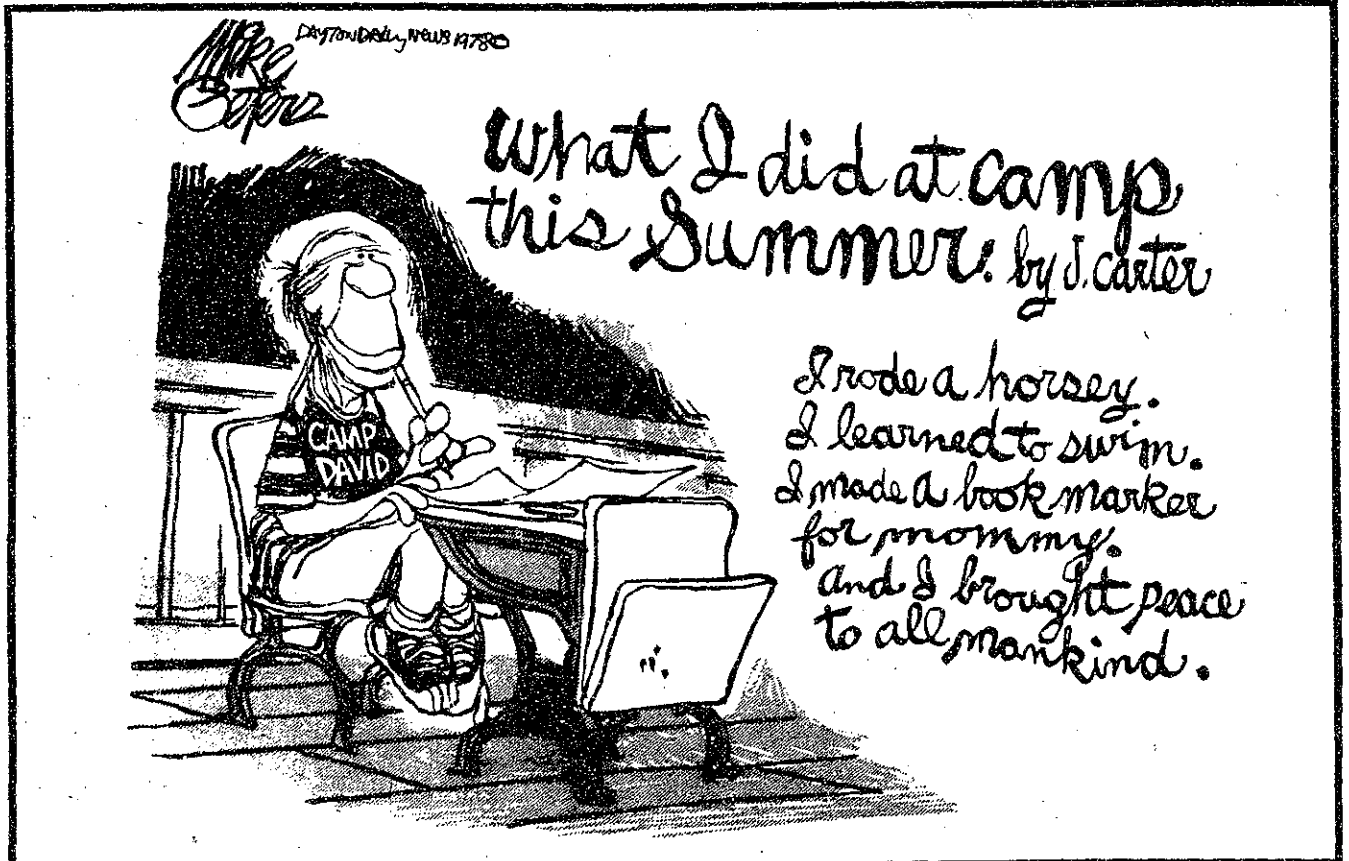 Mike
Peters
DAYTON DAILY NEWS 1978©
What I did at camp
this Summer: by J. Carter
I rode a horsey.
I learned to swim.
I made a book marker
for mommy.
and I brought peace
to all mankind.
CAMP
DAVID